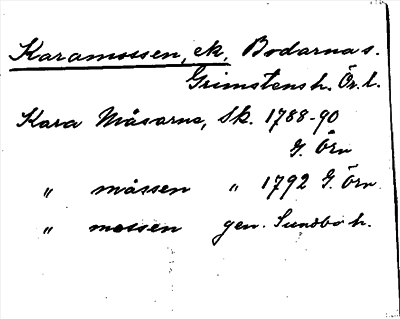 Karamossen, ek, Bodarna s.
Grimstens h. Ör. l.
Kara Måsarne, Sk. 1788-90
G. Örn
" måssen " 1792 G. Örn
" mossen gen. Sundbo h.